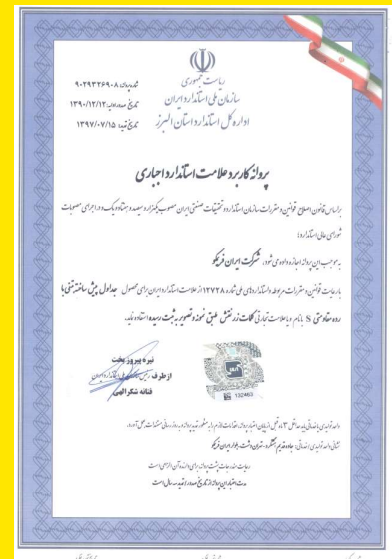 ریاست جمهوری
سازمان ملی استاندارد ایران
اداره کل استاندارد استان البرز
شماره پروانه: ۹۰۲۹۳۲۶۹۰۸
تاریخ صدور اولیه: ۱۳۹۰/۱۲/۱۲
تاریخ تمدید: ۱۳۹۷/۰۷/۱۵
پروانه کاربرد علامت استاندارد اجباری
براساس قانون اصلاح قوانین و مقررات سازمان استاندارد و تحقیقات صنعتی ایران مصوب یکهزار و سیصد و هفتاد و یک و در اجرای مصوبات
شورای عالی استاندارد؛
به موجب این پروانه اجازه داده می شود، شرکت ایران فریکو
با رعایت قوانین و مقررات مربوطه و استانداردهای ملی شماره ۱۲۷۲۸ از علامت استاندارد ایران برای محصول جداول پیش ساخته بتنی با
رده مقاومتی S با نام و یا علامت تجارتی کلمات زر نقش طبق نمونه و تصویر به ثبت رسیده استفاده نماید.
نیره پیروزبخت
از طرف رئیس سازمان ملی استاندارد ایران
فتانه شکرالهی
132463
واحد تولیدی/خدماتی باید حداقل ۳ ماه قبل از پایان اعتبار پروانه، اقدامات لازم را به منظور تمدید پروانه و به روز رسانی مستندات بعمل آورد.
نشانی واحد تولیدی/خدماتی: جاده قدیم اشتهارد، تهران دشت، بلوار ایران فریکو
رعایت مندرجات پشت پروانه برای دارنده آن الزامی است
مدت اعتبار این پروانه از تاریخ صدور / تمدید سه سال است